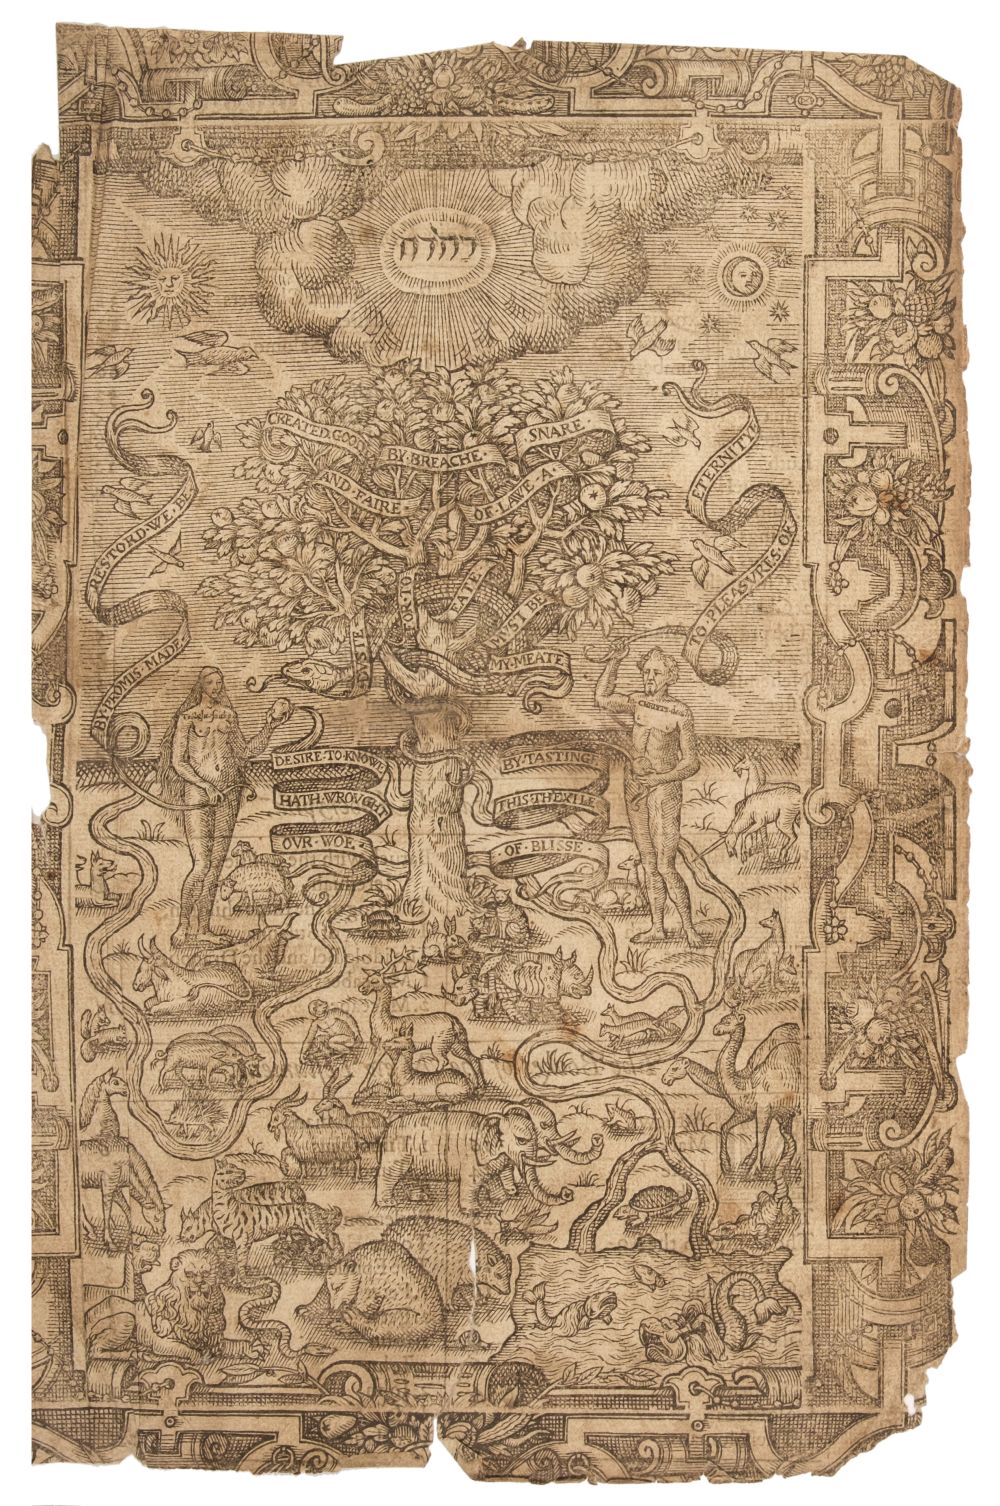 יהוה
CREATED·GOOD
AND·FAIRE·
BY·BREACHE·
OF·LAWE·A
SNARE
DVSTE
FOR·TO
EATE
MVST·BE
MY·MEATE
DESIRE·TO·KNOW
HATH·WROVGHT
OVR·WOE
BY·TASTING
THIS·THEXILE
OF·BLISSE
BY·PROMIS·MADE
RESTORD·WE·BE
TO·PLEASVRES·OF
ETERNITY